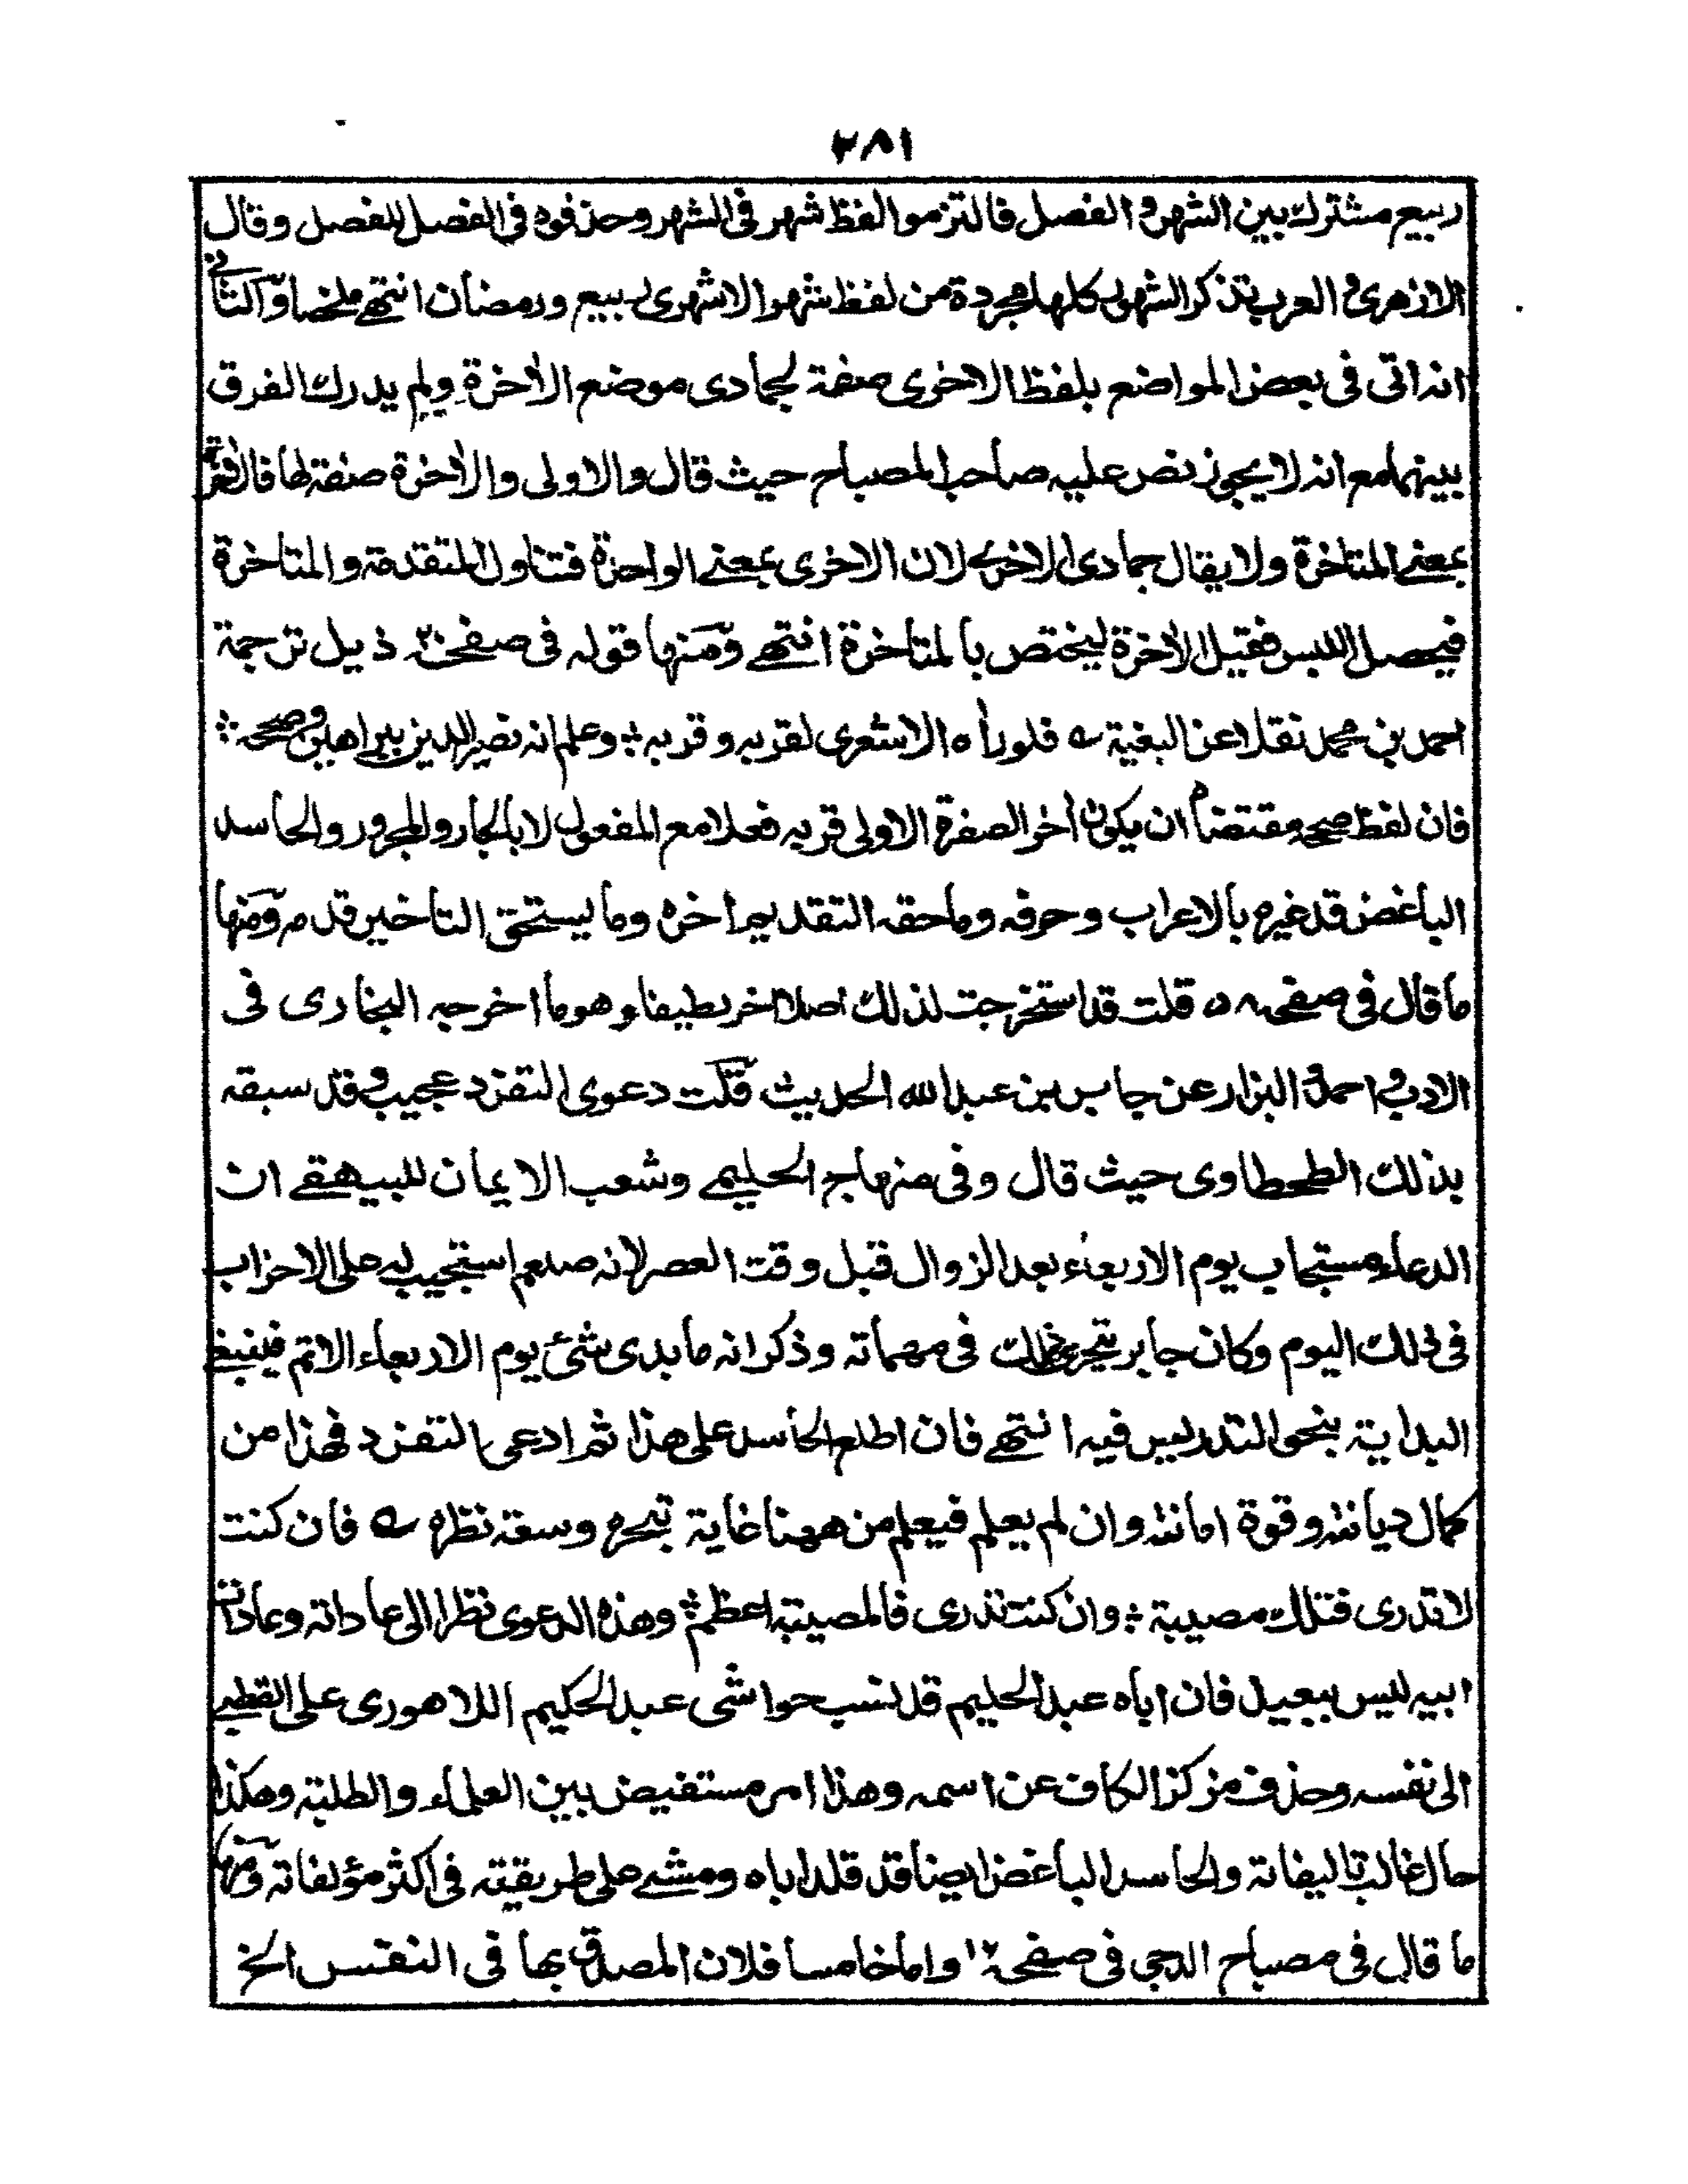 ٢٨١
ربيع مشترك بين الشهر والفصل فالتزموا لفظ شهر في الشهر وحذفوه في الفصل للفصل وقال
الازهري والعرب تذكر الشهور كلها مجردة من لفظ شهر الا شهري ربيع ورمضان انتهى ملخصا والثاني
انه اتى في بعض المواضع بلفظ الاخرى صفة لجمادى موضع الآخرة ولم يدرك الفرق
بينهما مع انه لا يجوز نص عليه صاحب المصباح حيث قال والاولى والآخرة صفة لها فالآخرة
بمعنى المتاخرة ولا يقال جمادى الاخرى لان الاخرى بمعنى الواحدة فتناول المتقدمة والمتاخرة
فيحصل اللبس فقيل الآخرة ليختص بالمتاخرة انتهى ومنها قوله في صفحة ٣٠ ذيل ترجمة
احمد بن محمد نقلا عن البغية ؎ فلو رآه الاشعري لقربه وقربه ؞ وعلم انه نصير الدين ببراهين وصححه ؞
فان لفظ صححه مقتضاه ان يكون آخر الصفرة الاولى قربه فعلا مع المفعول لا بالجار والمجرور والحاسد
الباغض قد غيره بالاعراب وحرفه وما حقه التقديم اخره وما يستحق التاخير قدمه ومنها
ما قال في صفحه ٥٨ قلت قد استخرجت لذلك اصلا آخر لطيفا وهو ما اخرجه البخاري في
الادب واحمد والبزار عن جابر بن عبد الله الحديث قلت دعوى التفرد عجيب وقد سبقه
بذلك الطحطاوي حيث قال وفي منهاج الحليمي وشعب الايمان للبيهقي ان
الدعاء مستجاب يوم الاربعاء بعد الزوال قبل وقت العصر لانه صلعم استجيب له على الاحزاب
في ذلك اليوم وكان جابر يتحرى ذلك في مهماته وذكر انه ما بدى شئ يوم الاربعاء الا تم فينبغي
البداية بنحو التدريس فيه انتهى فان اطلع الحاسد على هذا ثم ادعى التفرد فهذا من
كمال ديانته وقوة امانته وان لم يعلم فيعلم من ههنا غاية تبحره وسعة نظره ؎ فان كنت
لا تدري فتلك مصيبة ؞ وان كنت تدري فالمصيبة اعظم ؞ وهذه الدعوى نظرا الى عاداته وعادات
ابيه ليس ببعيد فان اباه عبد الحليم قد نسب حواشي عبد الحكيم اللاهوري على القطبي
الى نفسه وحذف مركز الكاف عن اسمه وهذا امر مستفيض بين العلماء والطلبة وهكذا
حال غالب تاليفاته والحاسد الباغض ايضا قد قلد اباه ومشى على طريقته في اكثر مؤلفاته ومنها
ما قال في مصباح الدجى في صفحة ١٢ واما خامسا فلان المصدق بها في النفس الخ